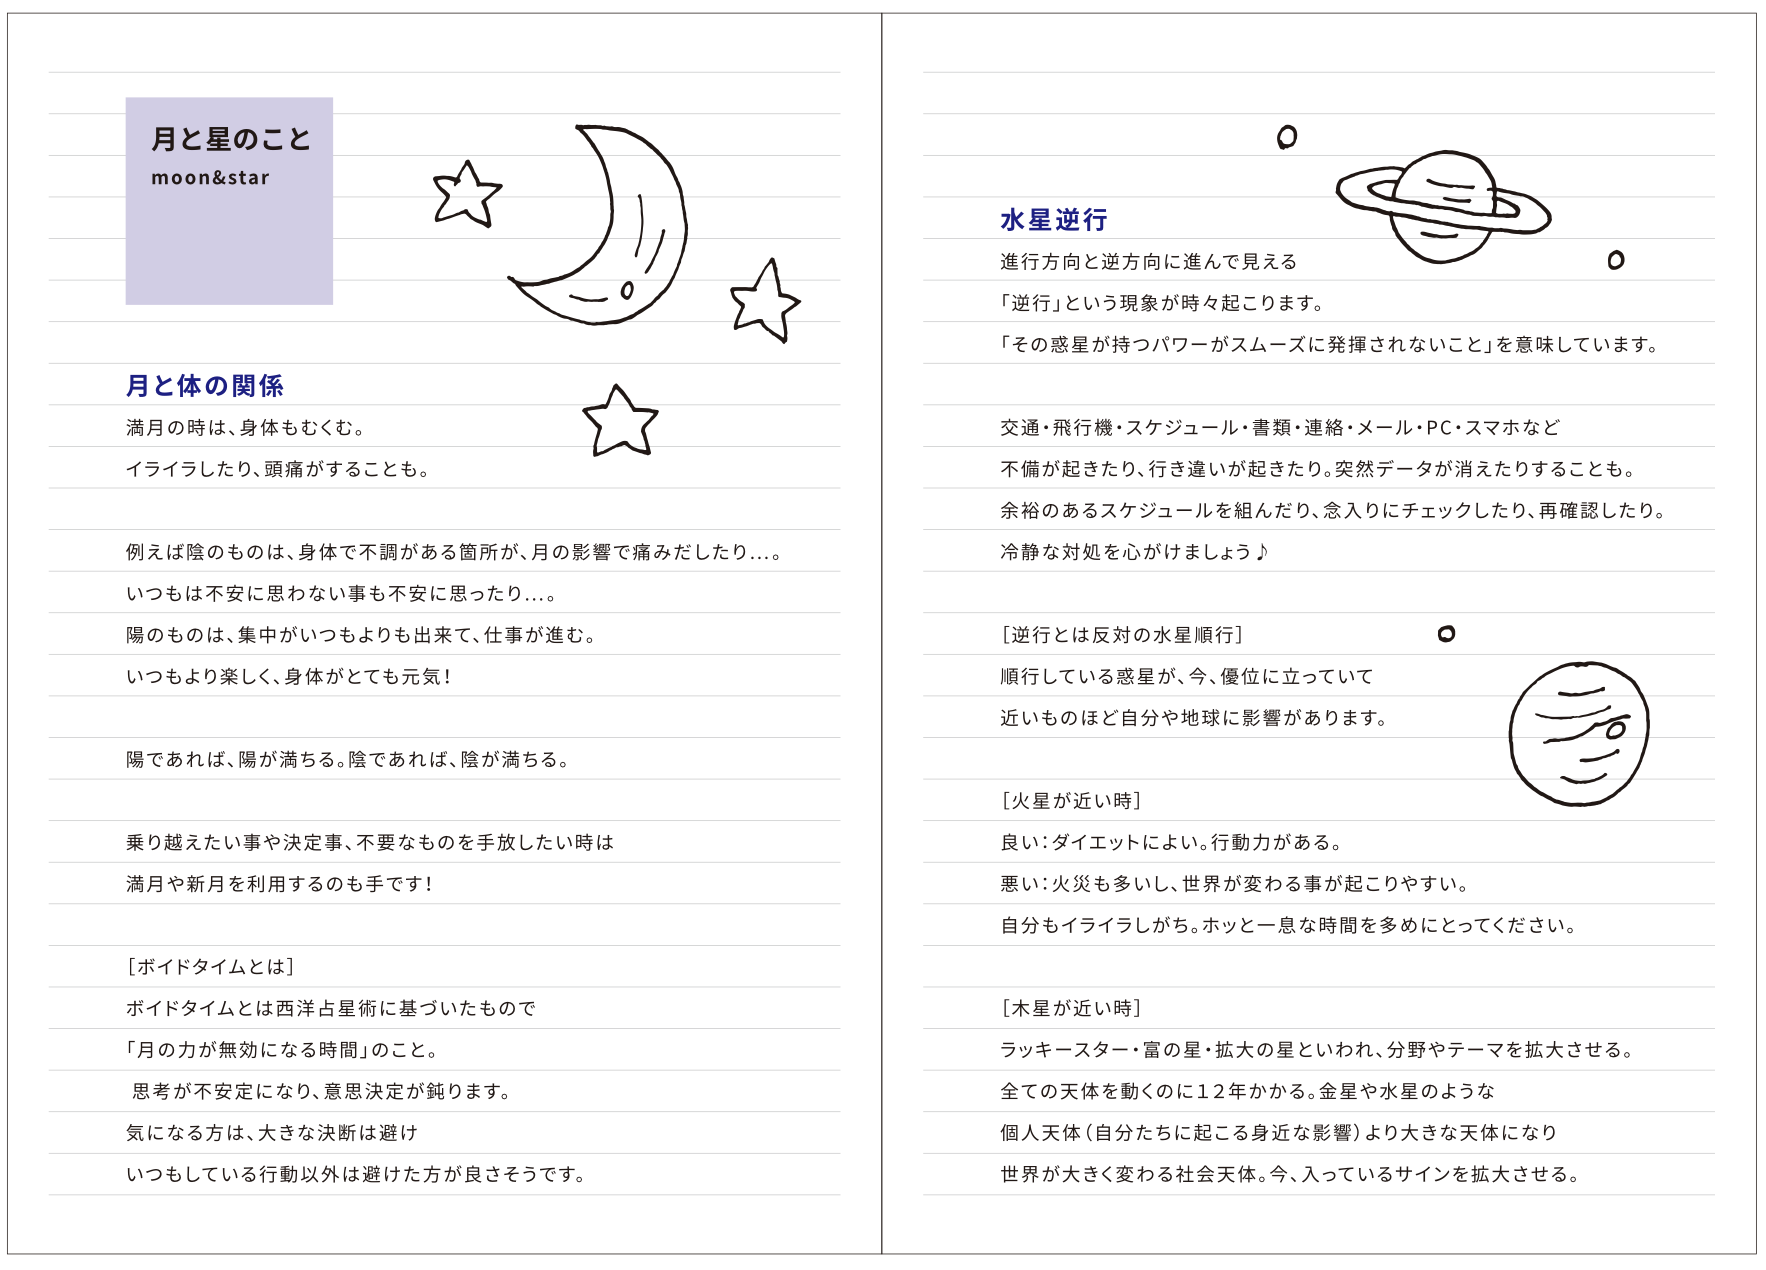 月と星のこと
moon&star
月と体の関係
満月の時は、身体もむくむ。
イライラしたり、頭痛がすることも。
例えば陰のものは、身体で不調がある箇所が、月の影響で痛みだしたり…。
いつもは不安に思わない事も不安に思ったり…。
陽のものは、集中がいつもよりも出来て、仕事が進む。
いつもより楽しく、身体がとても元気！
陽であれば、陽が満ちる。陰であれば、陰が満ちる。
乗り越えたい事や決定事、不要なものを手放したい時は
満月や新月を利用するのも手です！
［ボイドタイムとは］
ボイドタイムとは西洋占星術に基づいたもので
「月の力が無効になる時間」のこと。
思考が不安定になり、意思決定が鈍ります。
気になる方は、大きな決断は避け
いつもしている行動以外は避けた方が良さそうです。
水星逆行
進行方向と逆方向に進んで見える
「逆行」という現象が時々起こります。
「その惑星が持つパワーがスムーズに発揮されないこと」を意味しています。
交通・飛行機・スケジュール・書類・連絡・メール・PC・スマホなど
不備が起きたり、行き違いが起きたり。突然データが消えたりすることも。
余裕のあるスケジュールを組んだり、念入りにチェックしたり、再確認したり。
冷静な対処を心がけましょう♪
［逆行とは反対の水星順行］
順行している惑星が、今、優位に立っていて
近いものほど自分や地球に影響があります。
［火星が近い時］
良い：ダイエットによい。行動力がある。
悪い：火災も多いし、世界が変わる事が起こりやすい。
自分もイライラしがち。ホッと一息な時間を多めにとってください。
［木星が近い時］
ラッキースター・富の星・拡大の星といわれ、分野やテーマを拡大させる。
全ての天体を動くのに１２年かかる。金星や水星のような
個人天体（自分たちに起こる身近な影響）より大きな天体になり
世界が大きく変わる社会天体。今、入っているサインを拡大させる。